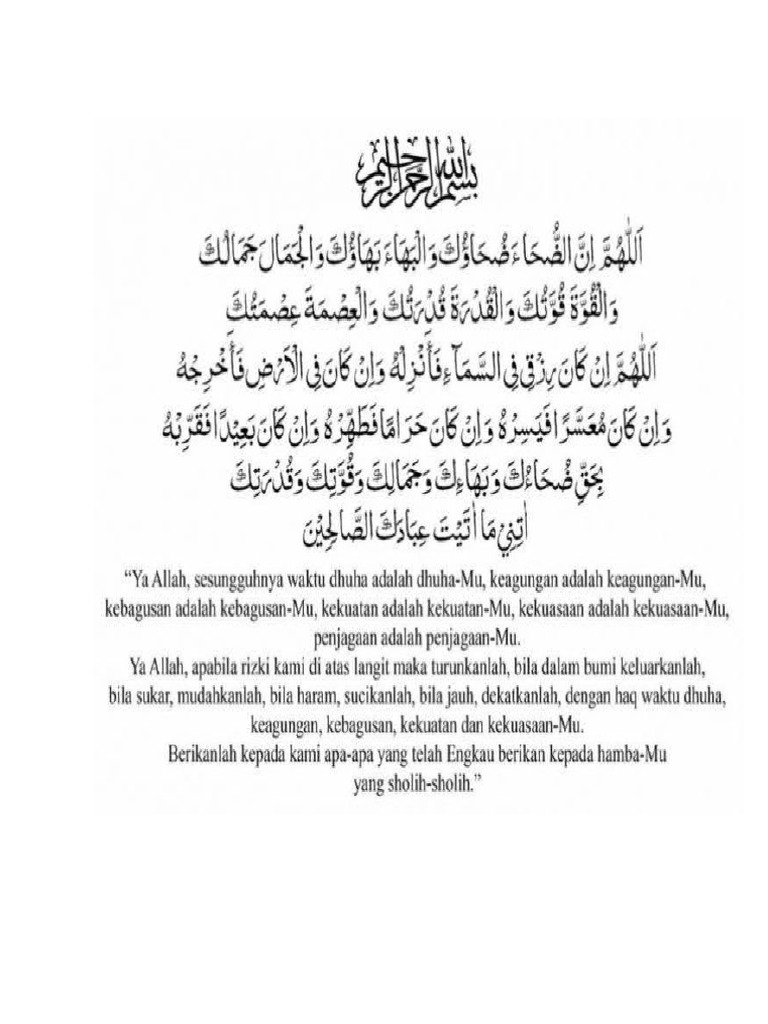 بسم الله الرحمن الرحيم
اَللّٰهُمَّ اِنَّ الضُّحَاءَ ضُحَاؤُكَ وَالْبَهَاءَ بَهَاؤُكَ وَالْجَمَالَ جَمَالُكَ
وَالْقُوَّةَ قُوَّتُكَ وَالْقُدْرَةَ قُدْرَتُكَ وَالْعِصْمَةَ عِصْمَتُكَ
اَللّٰهُمَّ اِنْ كَانَ رِزْقِي فِي السَّمَآءِ فَأَنْزِلْهُ وَاِنْ كَانَ فِي الْاَرْضِ فَأَخْرِجْهُ
وَاِنْ كَانَ مُعَسَّرًا فَيَسِّرْهُ وَاِنْ كَانَ حَرَامًا فَطَهِّرْهُ وَاِنْ كَانَ بَعِيْدًا فَقَرِّبْهُ
بِحَقِّ ضُحَاءِكَ وَبَهَاءِكَ وَجَمَالِكَ وَقُوَّتِكَ وَقُدْرَتِكَ
اٰتِنِيْ مَا اٰتَيْتَ عِبَادَكَ الصَّالِحِيْنَ
“Ya Allah, sesungguhnya waktu dhuha adalah dhuha-Mu, keagungan adalah keagungan-Mu,
kebagusan adalah kebagusan-Mu, kekuatan adalah kekuatan-Mu, kekuasaan adalah kekuasaan-Mu,
penjagaan adalah penjagaan-Mu.
Ya Allah, apabila rizki kami di atas langit maka turunkanlah, bila dalam bumi keluarkanlah,
bila sukar, mudahkanlah, bila haram, sucikanlah, bila jauh, dekatkanlah, dengan haq waktu dhuha,
keagungan, kebagusan, kekuatan dan kekuasaan-Mu.
Berikanlah kepada kami apa-apa yang telah Engkau berikan kepada hamba-Mu
yang sholih-sholih.”